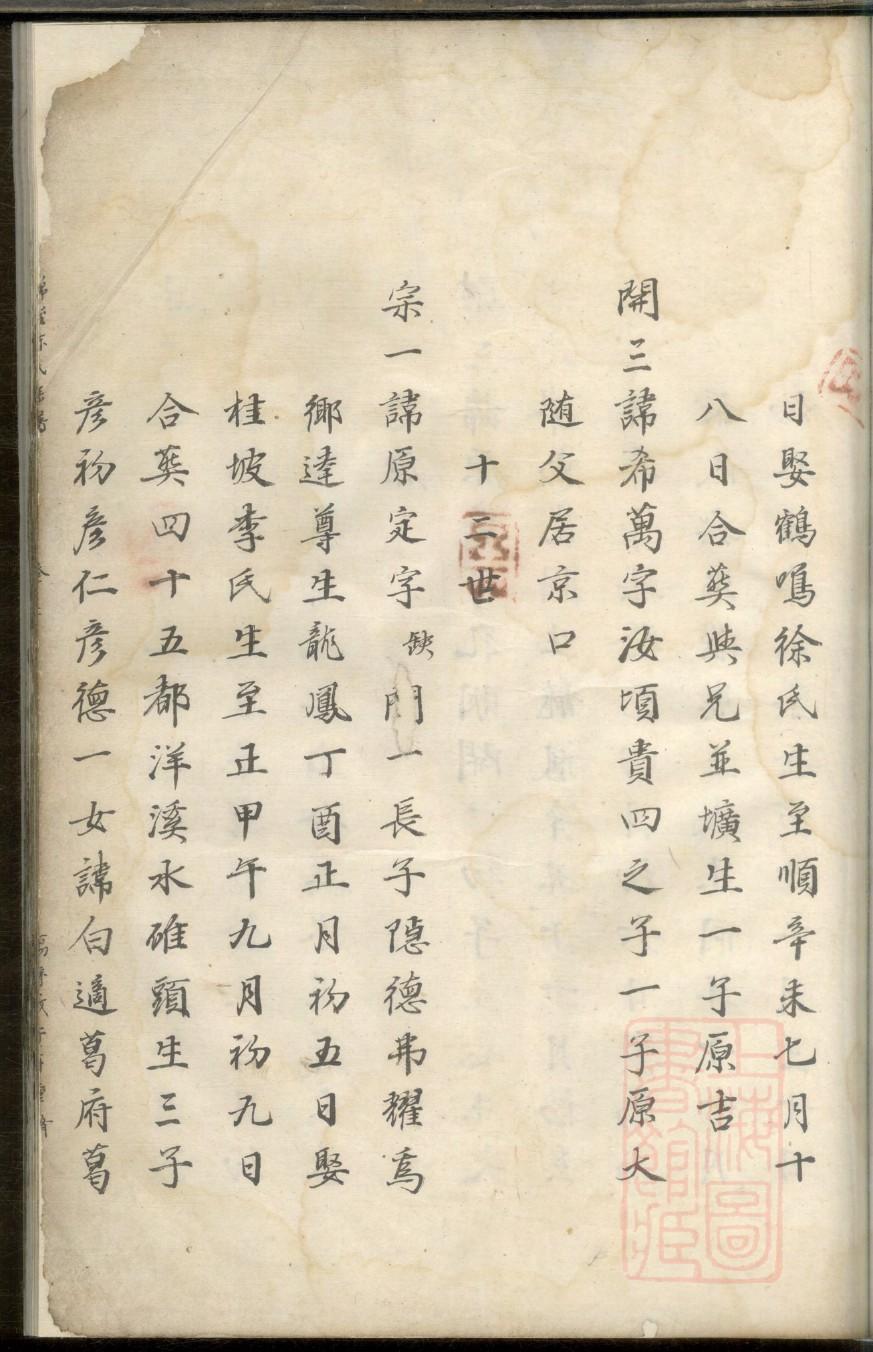 日娶鶴鳴徐氏生至順辛未七月十
八日合𦵏與兄並壙生一子原吉
開三諱希萬字汝頃貴四之子一子原大
随父居京口
十二世
宗一諱原定字缺門一長子隠德弗耀爲
鄉逹尊生龍鳳丁酉正月初五日娶
桂坡李氏生至正甲午九月初九日
合𦵏四十五都洋溪水碓頭生三子
彦初彦仁彦德一女諱白適葛府葛
上海圖書館藏